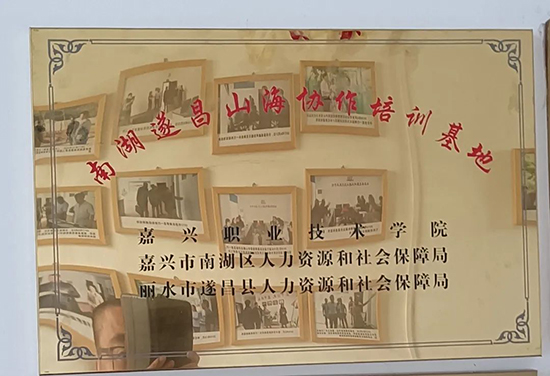 南湖遂昌山海协作培训基地
嘉兴职业技术学院
嘉兴市南湖区人力资源和社会保障局
丽水市遂昌县人力资源和社会保障局